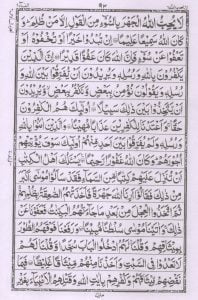 لَا يُحِبُّ اللهُ الْجَهْرَ بِالسُّوْٓءِ مِنَ الْقَوْلِ اِلَّا مَنْ ظُلِمَ وَ
كَانَ اللهُ سَمِيْعًا عَلِيْمًا اِنْ تُبْدُوْا خَيْرًا اَوْ تُخْفُوْهُ اَوْ
تَعْفُوْا عَنْ سُوْٓءٍ فَاِنَّ اللهَ كَانَ عَفُوًّا قَدِيْرًا اِنَّ الَّذِيْنَ
يَكْفُرُوْنَ بِاللهِ وَرُسُلِهٖ وَيُرِيْدُوْنَ اَنْ يُّفَرِّقُوْا بَيْنَ اللهِ
وَرُسُلِهٖ وَيَقُوْلُوْنَ نُؤْمِنُ بِبَعْضٍ وَّنَكْفُرُ بِبَعْضٍ وَّيُرِيْدُوْنَ
اَنْ يَّتَّخِذُوْا بَيْنَ ذٰلِكَ سَبِيْلًا اُولٰٓئِكَ هُمُ الْكٰفِرُوْنَ
حَقًّا وَاَعْتَدْنَا لِلْكٰفِرِيْنَ عَذَابًا مُّهِيْنًا وَالَّذِيْنَ اٰمَنُوْا بِاللهِ
وَرُسُلِهٖ وَلَمْ يُفَرِّقُوْا بَيْنَ اَحَدٍ مِّنْهُمْ اُولٰٓئِكَ سَوْفَ يُؤْتِيْهِمْ
اُجُوْرَهُمْ وَكَانَ اللهُ غَفُوْرًا رَّحِيْمًا يَسْئَلُكَ اَهْلُ الْكِتٰبِ
اَنْ تُنَزِّلَ عَلَيْهِمْ كِتٰبًا مِّنَ السَّمَآءِ فَقَدْ سَاَلُوْا مُوْسٰٓى اَكْبَرَ
مِنْ ذٰلِكَ فَقَالُوْٓا اَرِنَا اللهَ جَهْرَةً فَاَخَذَتْهُمُ الصّٰعِقَةُ بِظُلْمِهِمْ
ثُمَّ اتَّخَذُوا الْعِجْلَ مِنْ بَعْدِ مَا جَآءَتْهُمُ الْبَيِّنٰتُ فَعَفَوْنَا عَنْ
ذٰلِكَ وَاٰتَيْنَا مُوْسٰى سُلْطٰنًا مُّبِيْنًا وَرَفَعْنَا فَوْقَهُمُ الطُّوْرَ
بِمِيْثَاقِهِمْ وَقُلْنَا لَهُمُ ادْخُلُوا الْبَابَ سُجَّدًا وَّقُلْنَا لَهُمْ
لَا تَعْدُوْا فِى السَّبْتِ وَاَخَذْنَا مِنْهُمْ مِّيْثَاقًا غَلِيْظًا فَبِمَا
نَقْضِهِمْ مِّيْثَاقَهُمْ وَكُفْرِهِمْ بِاٰيٰتِ اللهِ وَقَتْلِهِمُ الْاَنْۢبِيَآءَ بِغَيْرِ